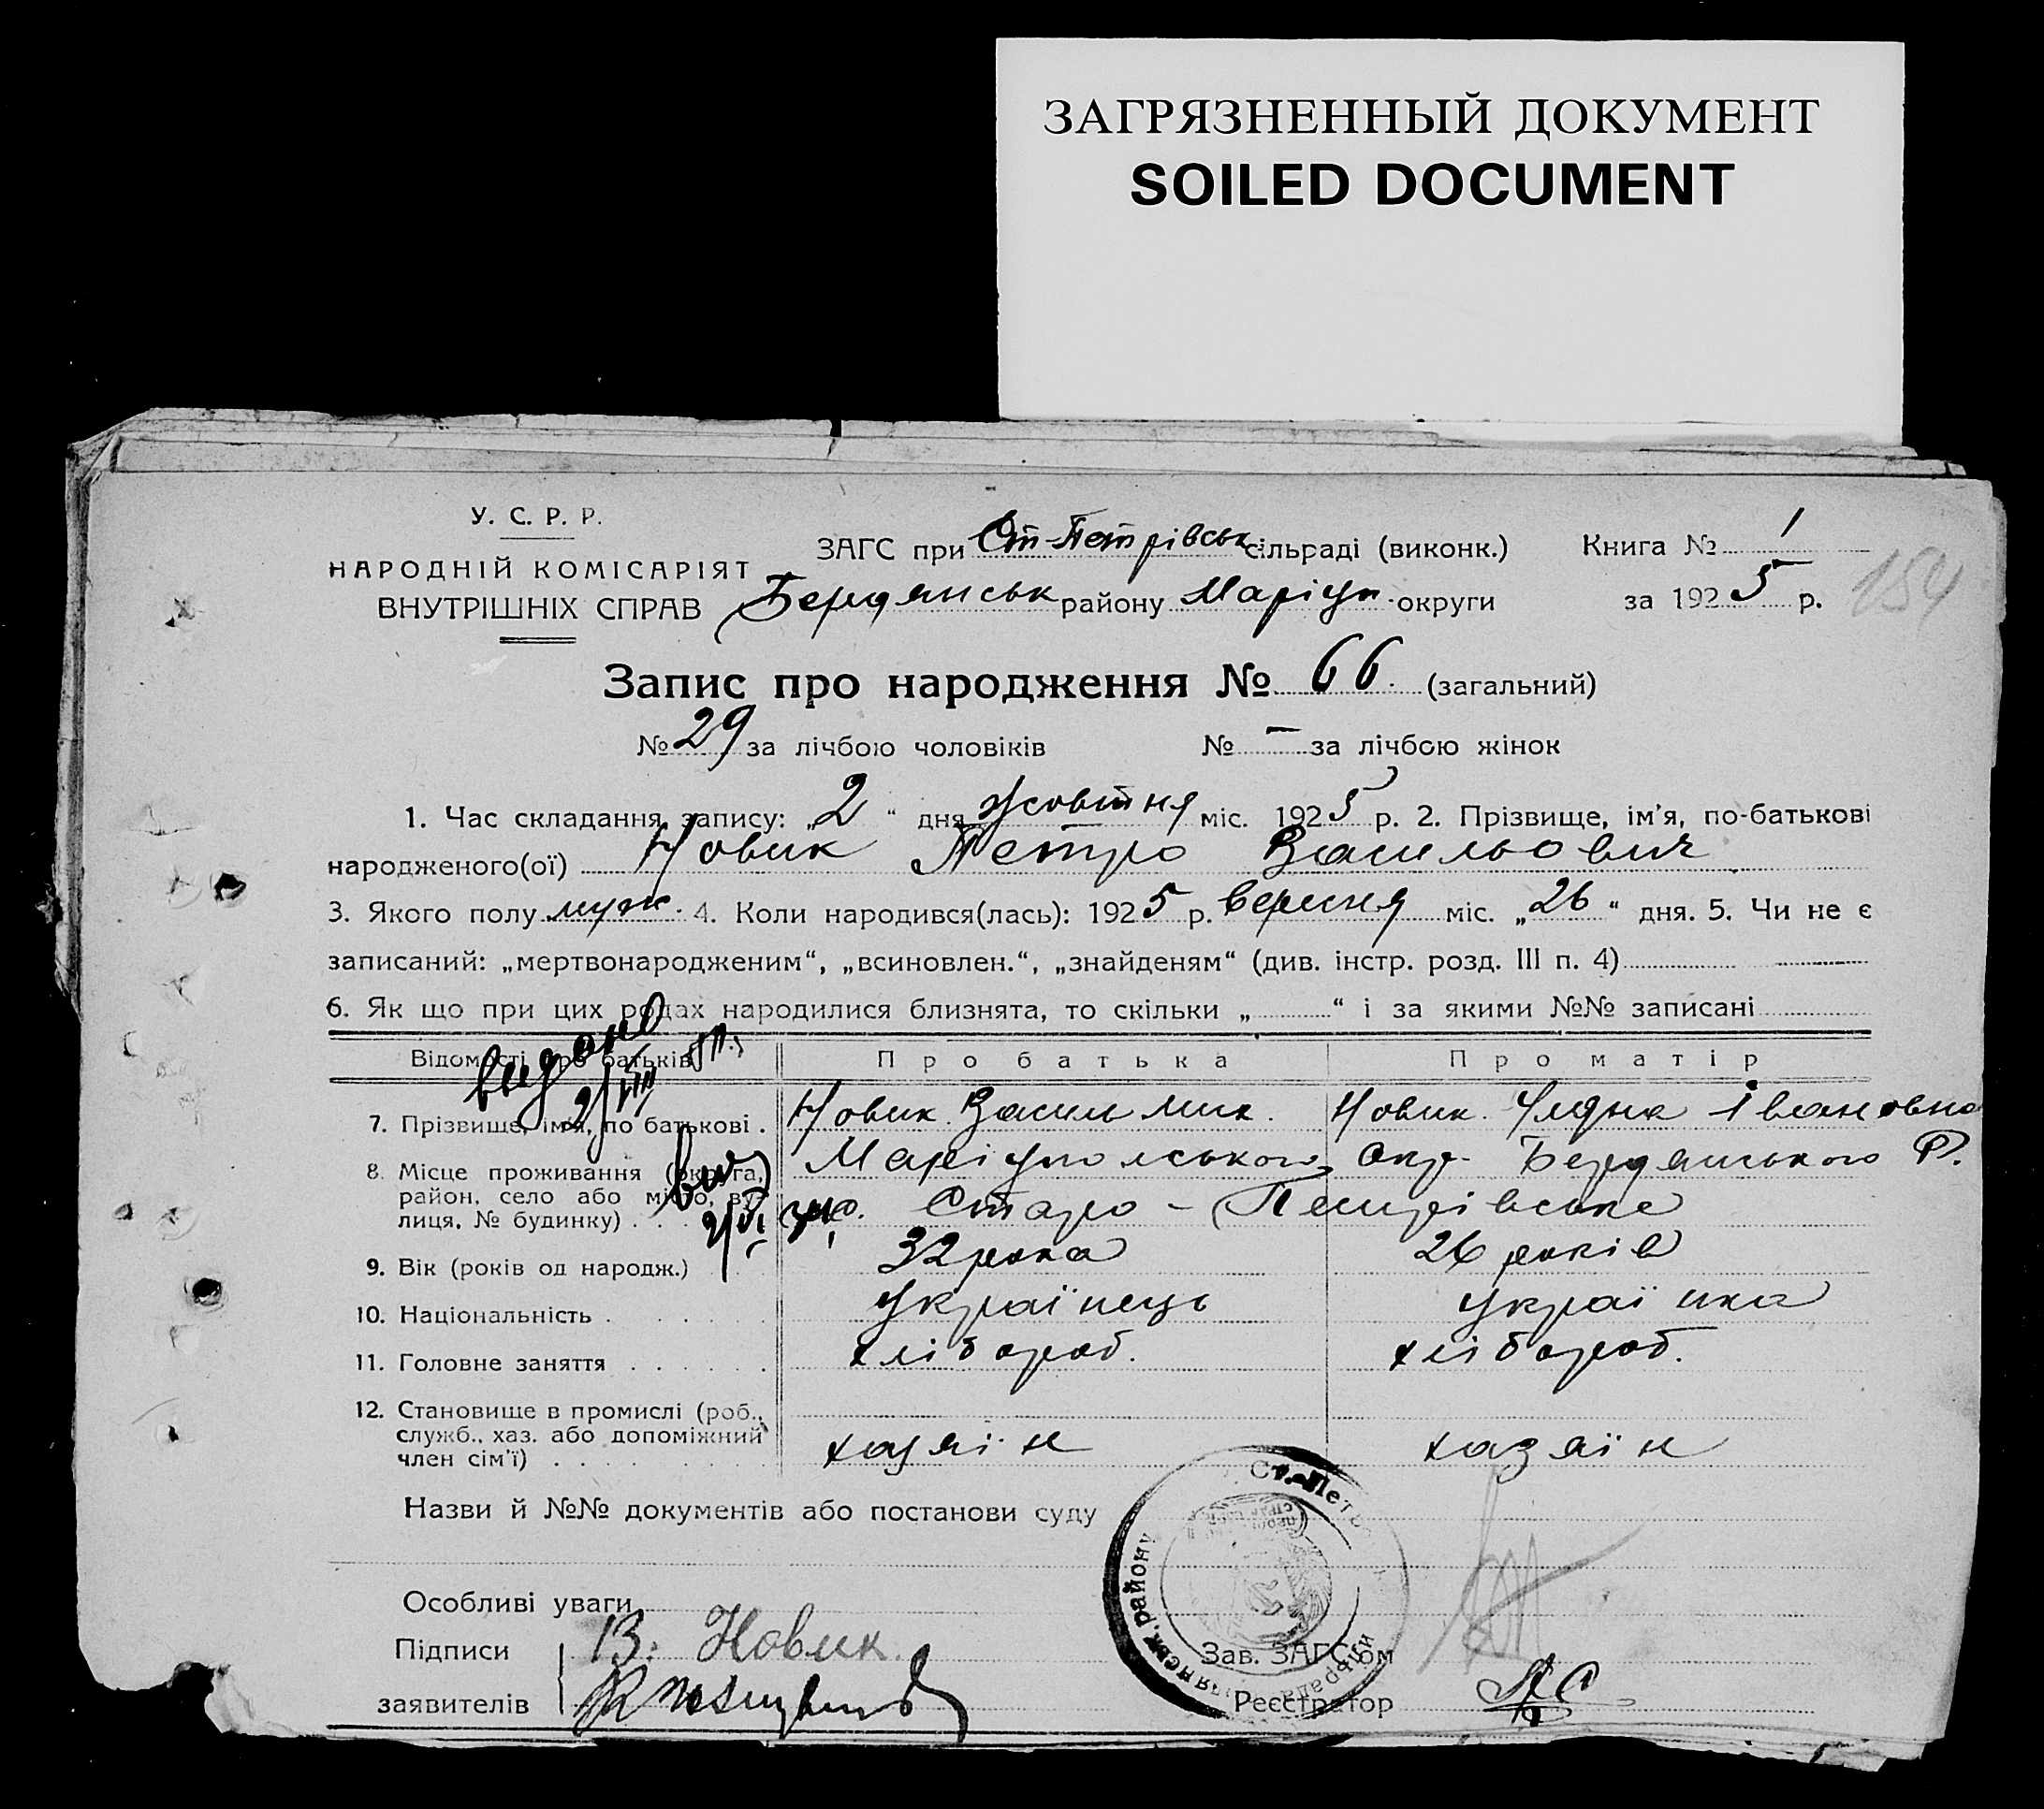 ЗАГРЯЗНЕННЫЙ ДОКУМЕНТ
SOILED DOCUMENT
У. С. Р. Р.
НАРОДНІЙ КОМІСАРІЯТ
ВНУТРІШНІХ СПРАВ
ЗАГС при Ст-Петрівськ. сільраді (виконк.)
Бердянськ району Маріуп. округи
Книга № 1
за 1925 р.
154
Запис про народження № 66. (загальний)
№ 29 за лічбою чоловіків № — за лічбою жінок
1. Час складання запису: „2“ дня жовтня міс. 1925 р. 2. Прізвище, ім'я, по-батькові
народженого(ої) Новик Петро Васильович
3. Якого полу муж. 4. Коли народився(лась): 1925 р. вересня міс. „26“ дня. 5. Чи не є
записаний: „мертвонародженим“, „всиновлен.“, „знайденям“ (див. інстр. розд. III п. 4)
6. Як що при цих родах народилися близнята, то скільки „ “ і за якими №№ записані
видано
Відомості про батьків Про батька Про матір
7. Прізвище, ім'я, по батькові . Новик Василь Новик Івановна
8. Місце проживання (округа, Маріупольського Окр. Бердянського Р.
район, село або місто, ву-
лиця, № будинку) . . . Старо-Петрівське
9. Вік (років од народж.) 32 рока 26 років
10. Національність . Українець Українка
11. Головне заняття . хлібороб. хлібороб.
12. Становище в промислі (роб.,
служб., хаз. або допоміжний
член сім'ї) . хазяїн хазяїн
Назви й №№ документів або постанови суду
Особливі уваги
Підписи В. Новик.
заявителів
Зав. ЗАГС'ом
Реєстратор